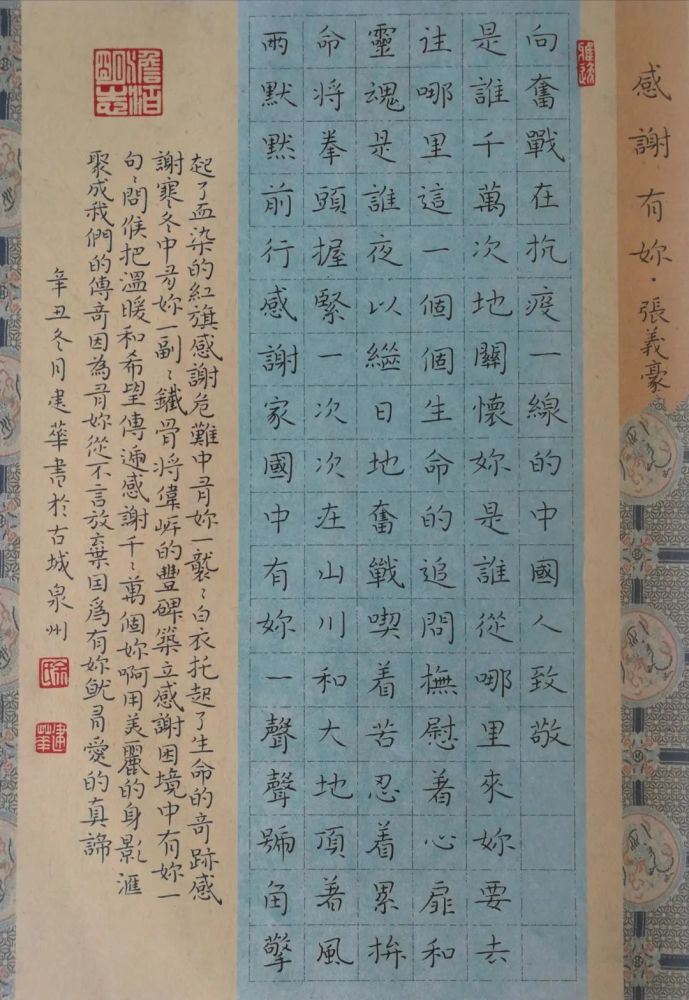 感謝有妳·張義豪
向奮戰在抗疫一線的中國人致敬
是誰千萬次地關懷妳是誰從哪里來妳要去
往哪里這一個個生命的追問撫慰著心扉和
靈魂是誰夜以繼日地奮戰喫着苦忍着累拚
命將拳頭握緊一次次在山川和大地頂著風
雨默默前行感謝家國中有妳一聲聲號角擎
起了血染的紅旗感謝危難中有妳一襲〻白衣托起了生命的奇跡感
謝寒冬中有妳一副〻鐵骨將偉岸的豐碑築立感謝困境中有妳一
句〻問候把溫暖和希望傳遞感謝千〻萬個妳啊用美麗的身影滙
聚成我們的傳奇因為有妳從不言放棄因爲有妳就有愛的真諦
辛丑冬月建華書於古城泉州
澹泊明志
建華